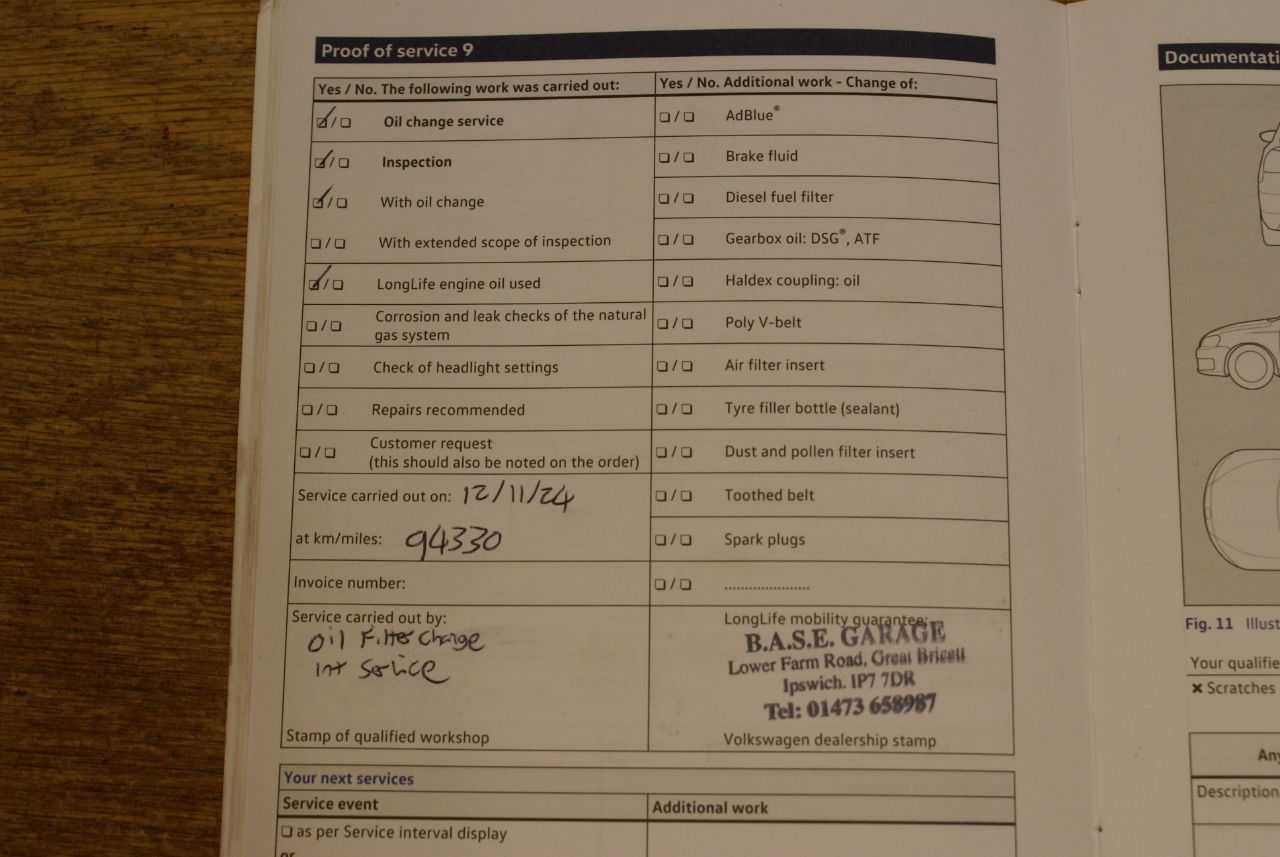 Proof of service 9
Yes / No. The following work was carried out:
☑/❏ Oil change service
☑/❏ Inspection
☑/❏ With oil change
❏/❏ With extended scope of inspection
☑/❏ LongLife engine oil used
❏/❏ Corrosion and leak checks of the natural
gas system
❏/❏ Check of headlight settings
❏/❏ Repairs recommended
❏/❏ Customer request
(this should also be noted on the order)
Service carried out on: 12/11/24
at km/miles: 94330
Invoice number:
Service carried out by:
Oil Filter change
Int Service
Stamp of qualified workshop
Yes / No. Additional work - Change of:
❏/❏ AdBlue®
❏/❏ Brake fluid
❏/❏ Diesel fuel filter
❏/❏ Gearbox oil: DSG®, ATF
❏/❏ Haldex coupling: oil
❏/❏ Poly V-belt
❏/❏ Air filter insert
❏/❏ Tyre filler bottle (sealant)
❏/❏ Dust and pollen filter insert
❏/❏ Toothed belt
❏/❏ Spark plugs
❏/❏ ......................
LongLife mobility guarantee:
B.A.S.E. GARAGE
Lower Farm Road, Great Bricett
Ipswich. IP7 7DR
Tel: 01473 658987
Volkswagen dealership stamp
Your next services
Service event
Additional work
❏ as per Service interval display
or
Documentati
Fig. 11 Illust
Your qualifie
✖ Scratches
Any
Description